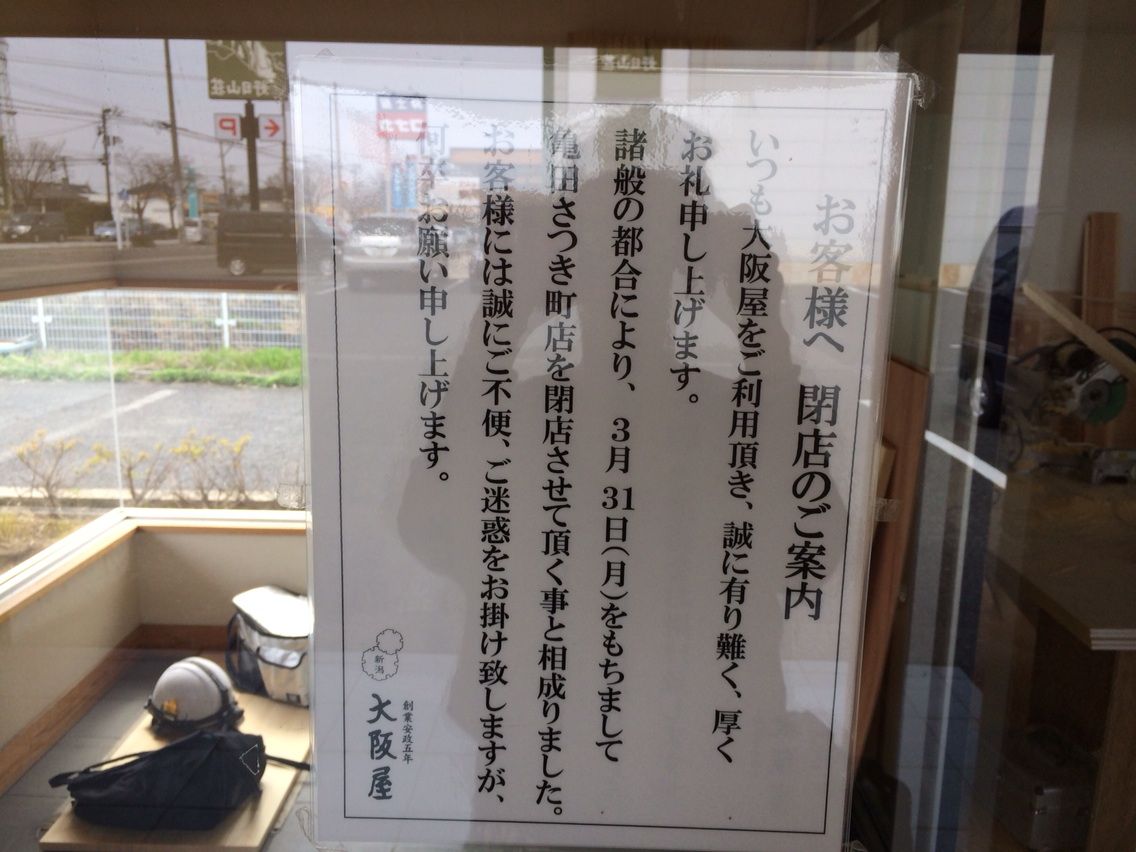 お客様へ 閉店のご案内
いつも大阪屋をご利用頂き、誠に有り難く、厚く
お礼申し上げます。
諸般の都合により、3月31日(月)をもちまして
亀田さつき町店を閉店させて頂く事と相成りました。
お客様には誠にご不便、ご迷惑をお掛け致しますが、
何卒お願い申し上げます。
新潟
創業安政五年
大阪屋
好日山荘
P
コナカ